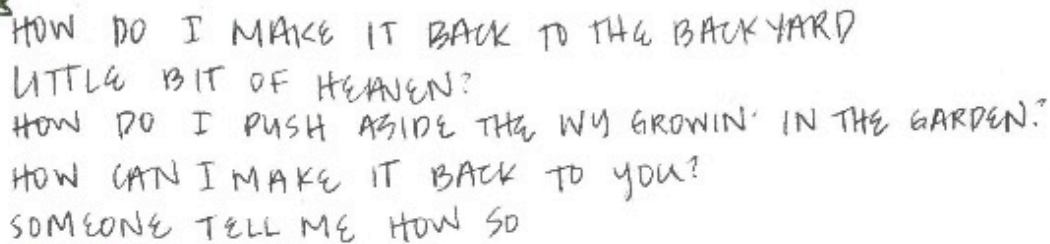 HOW DO I MAKE IT BACK TO THE BACKYARD
LITTLE BIT OF HEAVEN?
HOW DO I PUSH ASIDE THE IVY GROWIN' IN THE GARDEN?
HOW CAN I MAKE IT BACK TO YOU?
SOMEONE TELL ME HOW SO